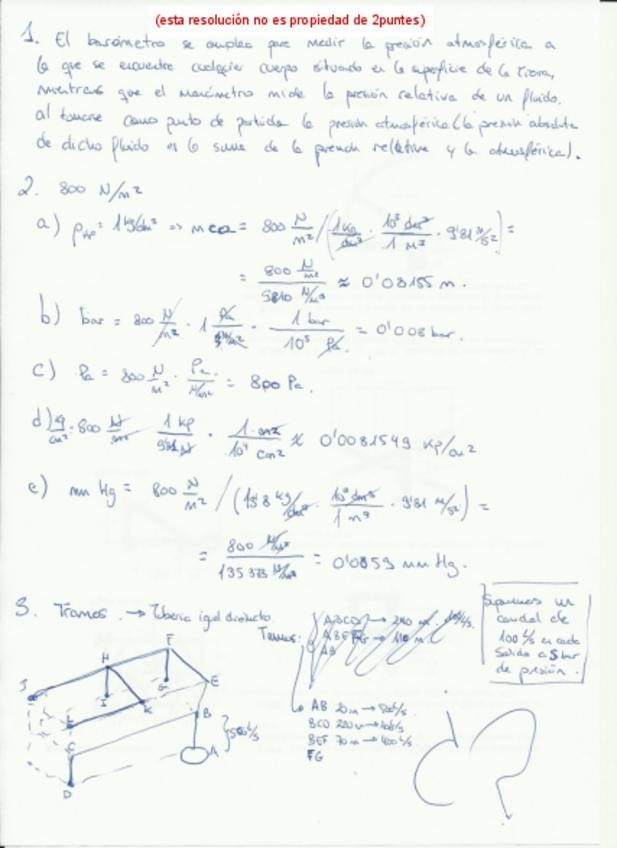 (esta resolución no es propiedad de 2puntes)
1. El barómetro se emplea que medir la presión atmosférica a
la que se encuentre cualquier cuerpo situado en la superficie de la Tierra,
mientras que el manómetro mide la presión relativa de un fluido.
al tomarse como punto de partida la presión atmosférica (la presión absoluta
de dicho fluido es la suma de la presión relativa y la atmosférica).
2. 800 N/m²
a) ρH₂O = 1 kg/dm³ => mca = 800 N/m² / (1 kg/dm³ · 10³ dm³/1 m³ · 9'81 m/s²) =
= 800 N/m² / 9810 N/m³ ≈ 0'08155 m.
b) bar = 800 N/m² · 1 Pa/N/m² · 1 bar/10⁵ Pa = 0'008 bar.
c) Pa = 800 N/m² · Pa/N/m² = 800 Pa.
d) kp/cm² = 800 N/m² · 1 kp/9'81 N · 1 m²/10⁴ cm² ≈ 0'0081549 kp/cm²
e) mm Hg = 800 N/m² / (13'8 kg/dm³ · 10³ dm³/1 m³ · 9'81 m/s²) =
= 800 N/m² / 135 378 N/m³ = 0'0059 mm Hg.
3. Tramos. → Tubería igual diámetro.
Tramos:
ABCD →
ABEFG → 110 m
AB
Suponemos un
caudal de
100 l/s en cada
salida a 5 bar
de presión.
AB 20 m → 500 l/s
BCD 220 m → 100 l/s
BEF 70 m → 400 l/s
FG
F
H
J
G
I
E
L
K
B
C
500 l/s
A
D